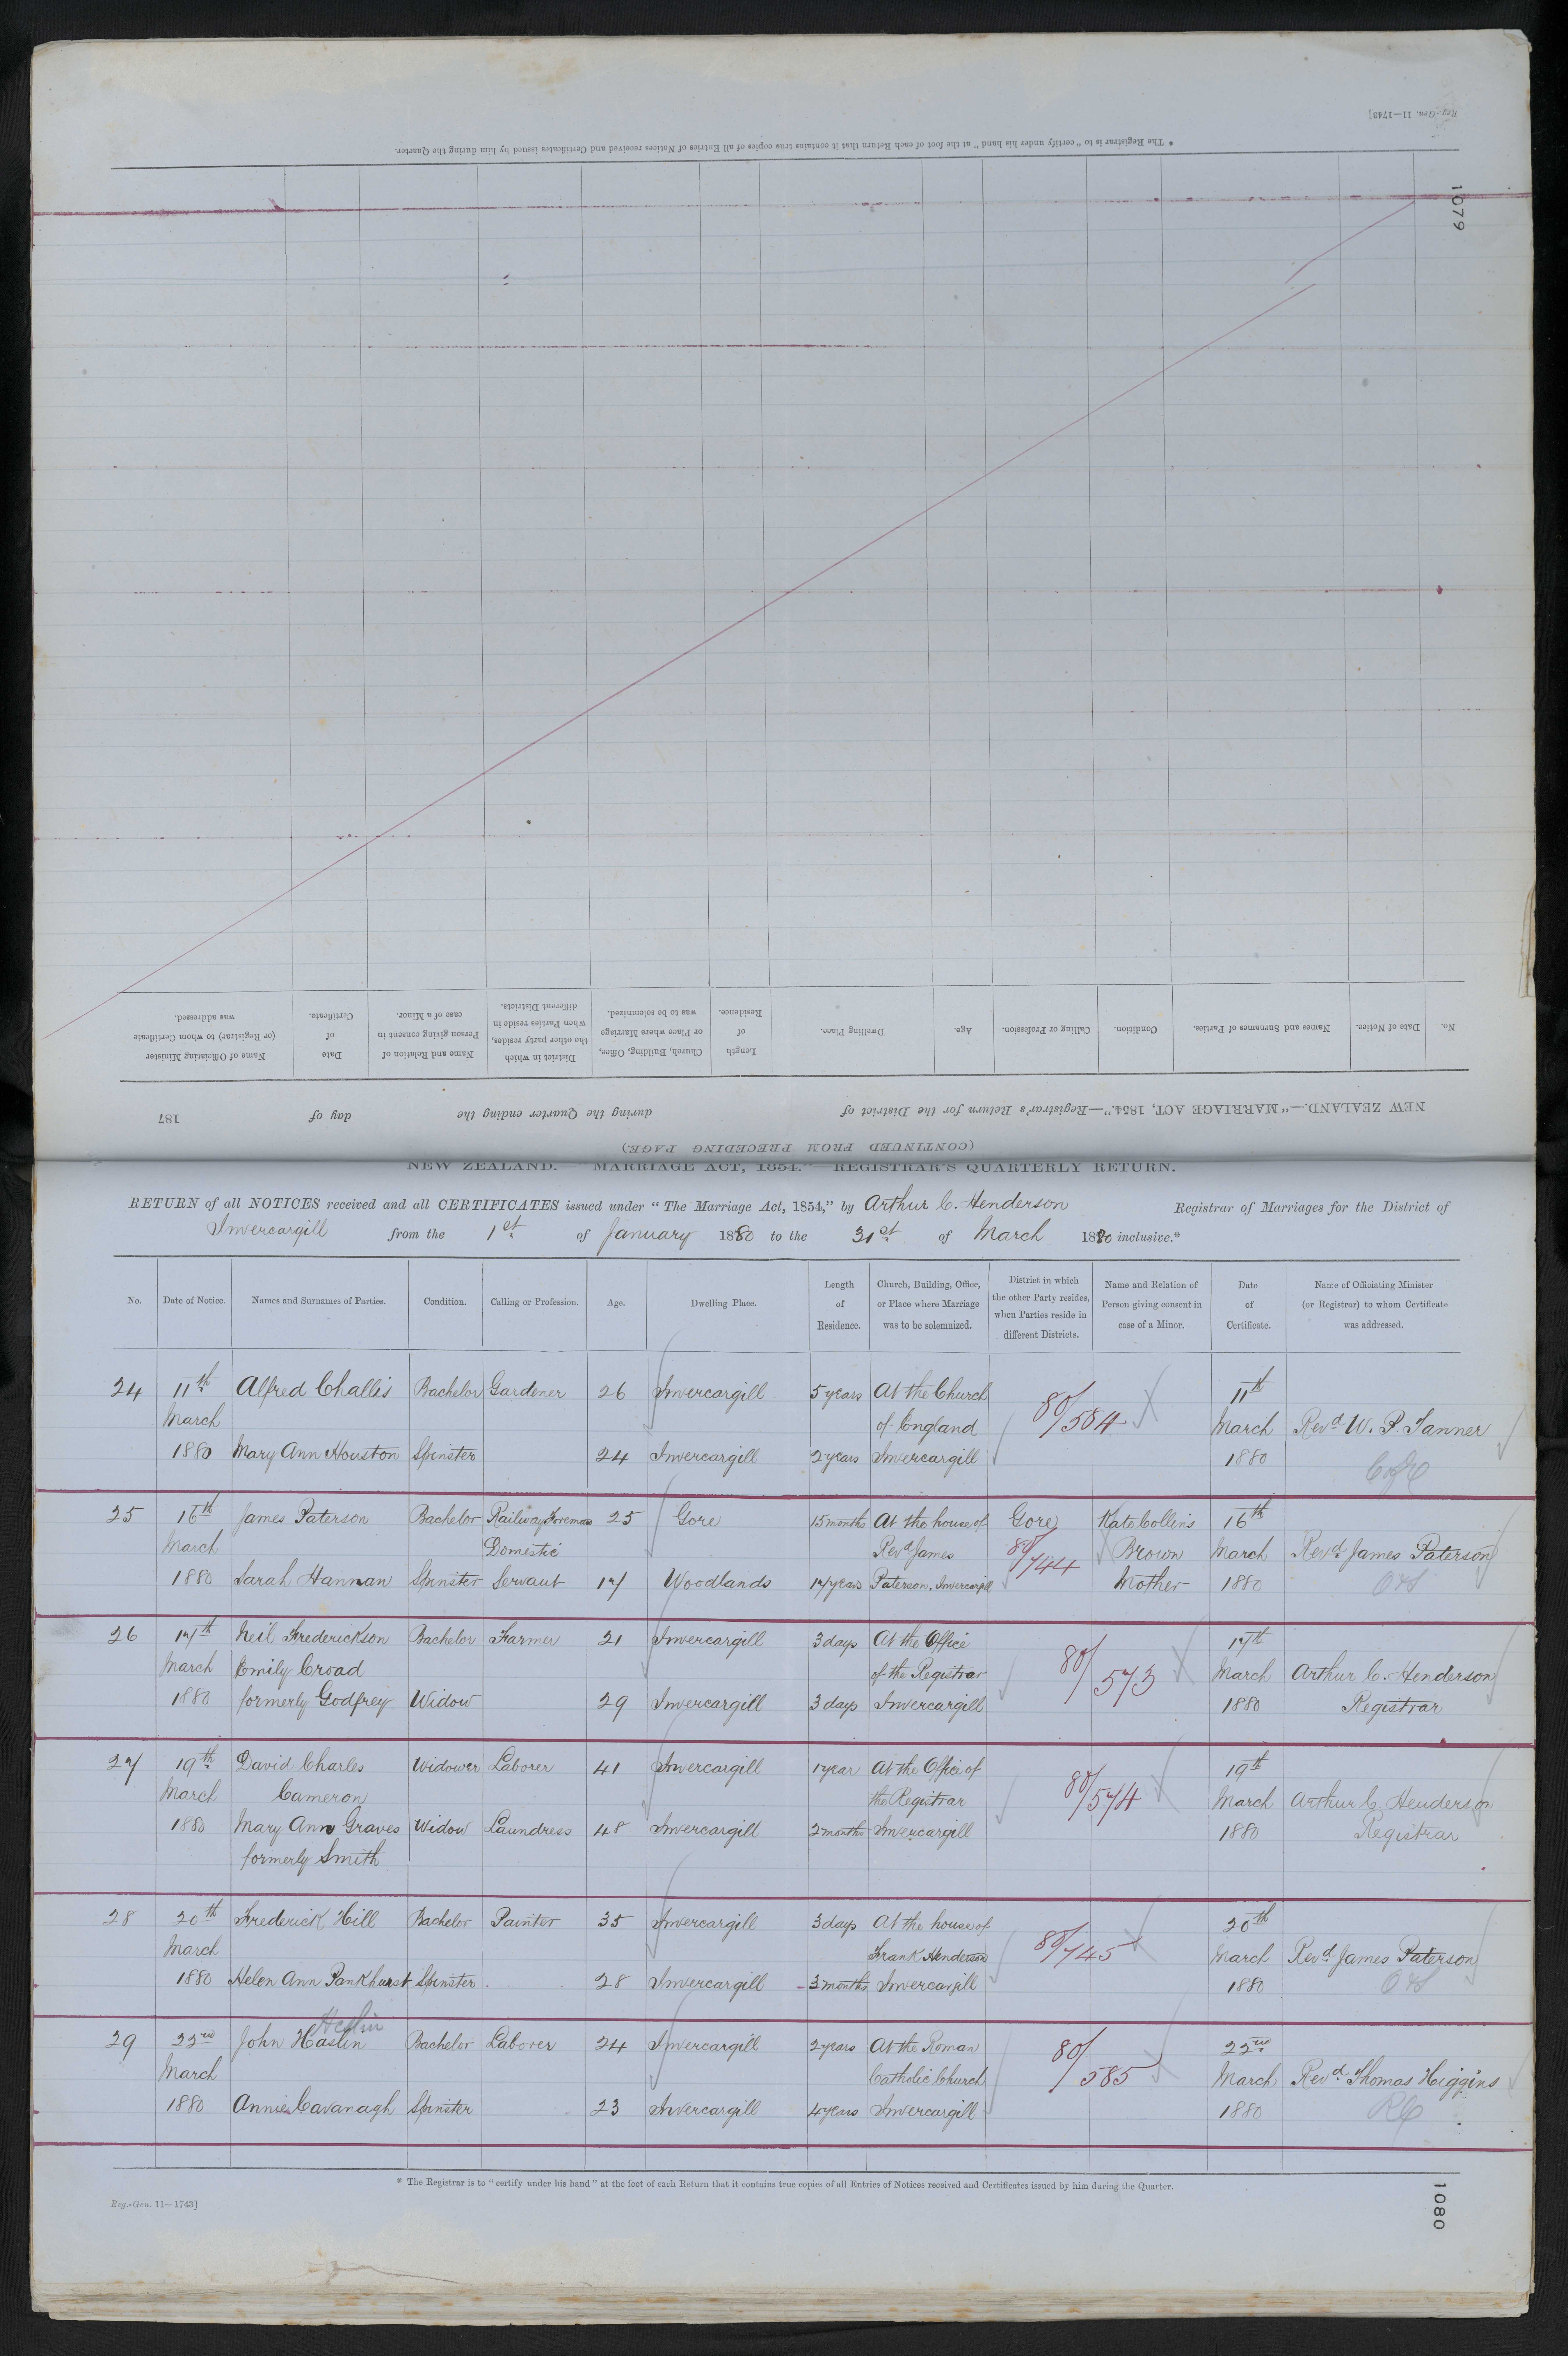 Reg.-Gen. 11—1743]
* The Registrar is to "certify under his hand" at the foot of each Return that it contains true copies of all Entries of Notices received and Certificates issued by him during the Quarter.
1079
No. Date of Notice. Names and Surnames of Parties. Condition. Calling or Profession. Age. Dwelling Place. Length of Residence. Church, Building, Office, or Place where Marriage was to be solemnized. District in which the other party resides, when Parties reside in different Districts. Name and Relation of Person giving consent in case of a Minor. Date of Certificate. Name of Officiating Minister (or Registrar) to whom Certificate was addressed.
NEW ZEALAND.—"MARRIAGE ACT, 1854."—Registrar's Return for the District of during the Quarter ending the day of 187
(CONTINUED FROM PRECEDING PAGE)
NEW ZEALAND.—"MARRIAGE ACT, 1854."—REGISTRAR'S QUARTERLY RETURN.
RETURN of all NOTICES received and all CERTIFICATES issued under "The Marriage Act, 1854," by Arthur C. Henderson Registrar of Marriages for the District of
Invercargill from the 1st of January 1880 to the 31st of March 1880 inclusive.*
No. Date of Notice. Names and Surnames of Parties. Condition. Calling or Profession. Age. Dwelling Place. Length of Residence. Church, Building, Office, or Place where Marriage was to be solemnized. District in which the other Party resides, when Parties reside in different Districts. Name and Relation of Person giving consent in case of a Minor. Date of Certificate. Name of Officiating Minister (or Registrar) to whom Certificate was addressed.
24 11th Alfred Challis Bachelor Gardener 26 Invercargill 5 years At the Church 11th
March of England 80/584 March Revd W. P. Tanner
1880 Mary Ann Houston Spinster 24 Invercargill 2 years Invercargill 1880 CofE
25 16th James Paterson Bachelor Railway Foreman 25 Gore 15 months At the house of Gore Kate Collins 16th
March Domestic Revd James 80/744 Brown March Revd James Paterson
1880 Sarah Hannan Spinster Servant 17 Woodlands 17 years Paterson, Invercargill Mother 1880 OS
26 17th Neil Frederickson Bachelor Farmer 21 Invercargill 3 days At the Office 17th
March Emily Croad of the Registrar 80/573 March Arthur C. Henderson
1880 formerly Godfrey Widow 29 Invercargill 3 days Invercargill 1880 Registrar
27 19th David Charles Widower Laborer 41 Invercargill 1 year At the Office of 19th
March Cameron the Registrar 80/574 March Arthur C. Henderson
1880 Mary Ann Graves Widow Laundress 48 Invercargill 2 months Invercargill 1880 Registrar
formerly Smith
28 20th Frederick Hill Bachelor Painter 35 Invercargill 3 days At the house of 20th
March Frank Henderson 80/745 March Revd James Paterson
1880 Helen Ann Pankhurst Spinster 28 Invercargill 3 months Invercargill 1880 OS
Heslin
29 22nd John Haslin Bachelor Laborer 24 Invercargill 2 years At the Roman 22nd
March Catholic Church 80/585 March Revd Thomas Higgins
1880 Annie Cavanagh Spinster 23 Invercargill 4 years Invercargill 1880 RC
* The Registrar is to "certify under his hand" at the foot of each Return that it contains true copies of all Entries of Notices received and Certificates issued by him during the Quarter.
Reg.-Gen. 11—1743]
1080